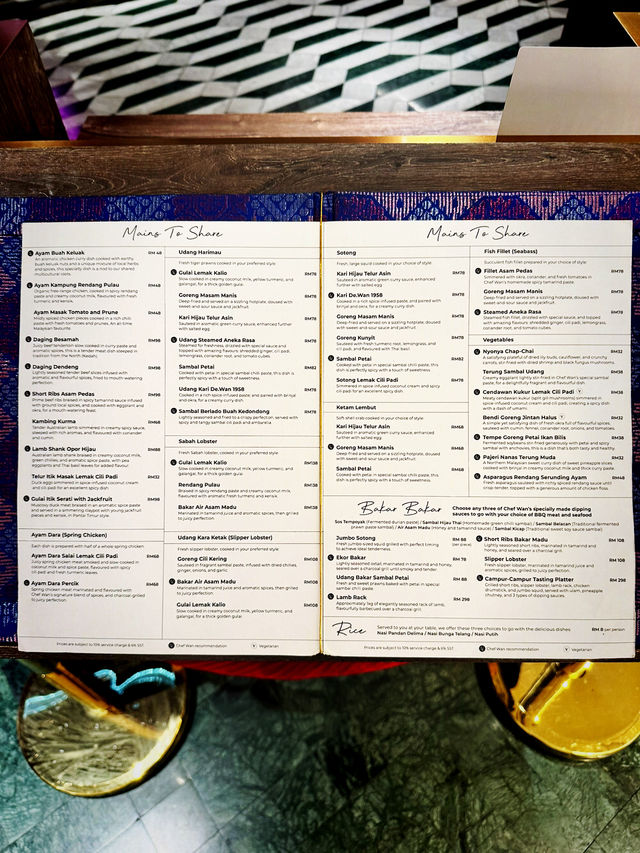 Mains To Share
Ayam Buah Keluak RM 48
An aromatic chicken curry dish cooked with earthy
buah keluak nuts and a unique mixture of local herbs
and spices, this specialty dish is a nod to our shared
multicultural idols.
Ayam Kampung Rendang Pulau RM48
Organic free-range chicken, cooked in spicy rendang
paste and creamy coconut milk, flavoured with fresh
turmeric and kerisik.
Ayam Masak Tomato and Prune RM48
Mildly spiced chicken pieces cooked in a rich chili
paste with fresh tomatoes and prunes. An all-time
Malaysian favourite.
Daging Besamah RM98
Daging Dendeng RM98
Lightly seasoned tender beef slices infused with
aromatic and flavourful spices, fried to mouth watering
perfection.
Short Ribs Asam Pedas RM98
Kambing Kurma RM68
Tender Australian lamb simmered in creamy spicy sauce,
and cumin.
Lamb Shank Opor Hijau RM88
Australian lamb shank braised in creamy coconut milk,
green chilies, and aromatic spice paste, with pea
eggplants and Thai basil leaves for added flavour.
Telur Itik Masak Lemak Cili Padi RM32
Duck eggs simmered in spiced yellow coconut cream
and cili padi for an excellent spicy dish.
Gulai Itik Serati with Jackfruit RM98
Muscovy duck meat braised in an aromatic spice paste
and served in a simmering claypot with young jackfruit
pieces and kerisik, in Pantai Timur style.
Ayam Dara (Spring Chicken)
Each dish is prepared with half of a whole spring chicken
Ayam Dara Salai Lemak Cili Padi RM68
Juicy spring chicken meat smoked and slow-cooked in
coconut milk and chili paste, flavoured with spicy
cili padi and tumeric leaf.
Ayam Dara Percik RM68
Spring chicken meat marinated and flavoured with
Chef Wan's signature blend of spices, and charcoal grilled
to juicy perfection.
Udang Harimau
Fresh tiger prawns cooked in your preferred style
Gulai Lemak Kalio RM78
Slow cooked in creamy coconut milk, yellow turmeric, and
galangal, for a thick golden gulai.
Goreng Masam Manis RM78
Deep fried and served on a sizzling hotplate, doused
with sweet and sour sauce and jackfruit.
Kari Hijau Telur Asin RM78
Sautéed in aromatic green curry sauce, enhanced further
with salted egg.
Udang Steamed Aneka Rasa RM78
Steamed for freshness, drizzled with special sauce and
topped with amazing flavours: shredded ginger, cili padi,
lemongrass, coriander root, and tomato cubes.
Sambal Petai RM82
Cooked with petai in special sambal chili paste, this dish is
perfectly spicy with a touch of sweetness.
Udang Kari De.Wan 1958 RM78
Cooked in a rich spice-infused paste, and paired with brinjal
and okra, for a creamy curry dish.
Sambal Berlado Buah Kedondong RM78
Lightly seasoned and fried to a crispy perfection, served with
spicy and tangy sambal cili padi and ambarella.
Sabah Lobster
Fresh Sabah lobster, cooked to your preferred style.
Gulai Lemak Kalio RM138
Slow cooked in creamy coconut milk, yellow turmeric, and
galangal, for a thick golden gulai.
Rendang Pulau RM138
Braised in spicy rendang paste and creamy coconut milk,
flavoured with aromatic turmeric and kerisik.
Bakar Air Asam Madu RM138
Marinated in tamarind juice and aromatic spices, then grilled
to juicy perfection.
Udang Kara Ketak (Slipper Lobster)
Fresh slipper lobster, cooked to your preferred style.
Goreng Cili Kering RM108
Sautéed in fragrant sambal paste, infused with dried chilies,
ginger, onions, and garlic.
Bakar Air Asam Madu RM108
Marinated in tamarind juice and aromatic spices, then grilled
to juicy perfection.
Gulai Lemak Kalio RM108
Slow cooked in creamy coconut milk, yellow turmeric, and
galangal, for a thick golden gulai.
Prices are subject to 10% service charge & 6% SST.
Chef Wan recommendation
Vegetarian
Mains To Share
Sotong
Fresh, large squid cooked in your choice of style:
Kari Hijau Telur Asin RM78
Sautéed in aromatic green curry sauce, enhanced
further with salted egg.
Kari De.Wan 1958 RM78
Cooked in a rich spice-infused paste, and paired with
brinjal and okra, for a creamy curry dish.
Goreng Masam Manis RM78
Deep fried and served on a sizzling hotplate, doused
with sweet and sour sauce and jackfruit.
Goreng Kunyit RM78
Sautéed with fresh turmeric root, lemongrass, and
cili padi, and flavoured with Thai basil.
Sambal Petai RM82
Cooked with petai in special sambal chili paste, this
dish is perfectly spicy with a touch of sweetness.
Sotong Lemak Cili Padi RM78
Simmered in spice infused coconut cream and spicy
cili padi for an excellent spicy dish.
Ketam Lembut
Soft shell crab cooked in your choice of style:
Kari Hijau Telur Asin RM68
Sautéed in aromatic green curry sauce, enhanced
further with salted egg.
Goreng Masam Manis RM68
Deep fried and served on a sizzling hotplate, doused
with sweet and sour sauce and jackfruit.
Sambal Petai RM68
Cooked with petai in special sambal chili paste, this
dish is perfectly spicy with a touch of sweetness.
Fish Fillet (Seabass)
Succulent fish fillet prepared in your choice of style.
Fillet Asam Pedas RM78
Simmered with okra, brinjal, and fresh tomatoes in
Chef Wan's homemade spicy tamarind paste
Goreng Masam Manis RM78
Deep fried and served on a sizzling hotplate, doused
with sweet and sour sauce and jackfruit.
Steamed Aneka Rasa RM78
Steamed fish fillet, drizzled with special sauce, and topped
with amazing flavours: shredded ginger, cili padi, lemongrass,
coriander root, and tomato cubes.
Vegetables
Nyonya Chap-Chai RM32
A satisfying plateful of dried lily buds, cauliflower, and crunchy
carrots, stir fried with dried shrimp and black fungus mushrooms.
Terung Sambal Udang RM38
Creamy eggplant lightly stir-fried in Chef Wan's special sambal
paste, for a delightfully fragrant and flavourful dish.
Cendawan Kukur Lemak Cili Padi RM38
Meaty cendawan kukur (split gill mushrooms) simmered
in creamy coconut cream and cili padi, creating a spicy dish
with a dash of umami.
Bendi Goreng Jintan Halus RM32
A simple yet satisfying dish of fresh okra full of flavourful spices,
sautéed with cumin, fennel, coriander root, onions, and tomatoes.
Tempe Goreng Petai Ikan Bilis RM38
Fermented soybeans stir fried generously with petai and spicy
sambal with anchovies, this is a dish that's both tasty and healthy.
Pajeri Nanas Terung Muda RM32
A Northern Malaysian sweet curry dish of sweet pineapple slices
cooked with brinjal in creamy coconut milk and thick curry paste.
Asparagus Rendang Serunding Ayam RM48
Fresh asparagus sautéed with richly spiced rendang sauce until
crisp-tender, topped with a generous amount of chicken floss.
Bakar Bakar
Choose any three of Chef Wan's specially made dipping
sauces to go with your choice of BBQ meat and seafood
Sos Tempoyak (Fermented durian paste) / Sambal Hijau Thai (Homemade green chili sambal) / Sambal Belacan (Traditional fermented
prawn paste sambal) / Air Asam Madu (Honey and tamarind sauce) / Sambal Kicap (Traditional sweet soy sauce sambal)
Jumbo Sotong RM 88
(per piece)
Fresh jumbo-sized squid grilled with perfect timing
to achieve ideal tenderness.
Ekor Bakar RM 78
Lightly seasoned oxtail, marinated in tamarind and honey,
seared over a charcoal grill until smokey and tender.
Udang Bakar Sambal Petai RM 88
Fresh and sweet prawns baked with petai in special
sambal chili paste.
Lamb Rack RM 298
Approximately 1kg of elegantly seasoned rack of lamb,
flavourfully barbecued over a charcoal grill.
Short Ribs Bakar Madu RM 108
Lightly seasoned short ribs, marinated in tamarind and
honey, and seared over a charcoal grill.
Slipper Lobster RM 108
Fresh slipper lobster, marinated in tamarind juice and
aromatic spices, then grilled to juicy perfection.
Campur-Campur Tasting Platter RM 298
Grilled short ribs, slipper lobster, lamb rack, chicken
drumstick, and jumbo squid, served with ulam, pineapple
chutney, and 3 types of dipping sauces.
Rice
Served to you at your table, we offer these three choices to go with the delicious dishes
Nasi Pandan Delima / Nasi Bunga Telang / Nasi Putih
RM 8 per person
Prices are subject to 10% service charge & 6% SST.
Chef Wan recommendation
Vegetarian